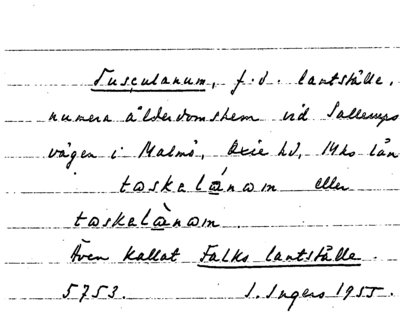 Tusculanum, f.d. lantställe,
numera ålderdomshem vid Sallerups
vägen i Malmö, Oxie hd, Mhs län
tɷskalánɷm eller
tɷskalànɷm.
Även kallat Falks lantställe.
5753. I. Ingers 1955.